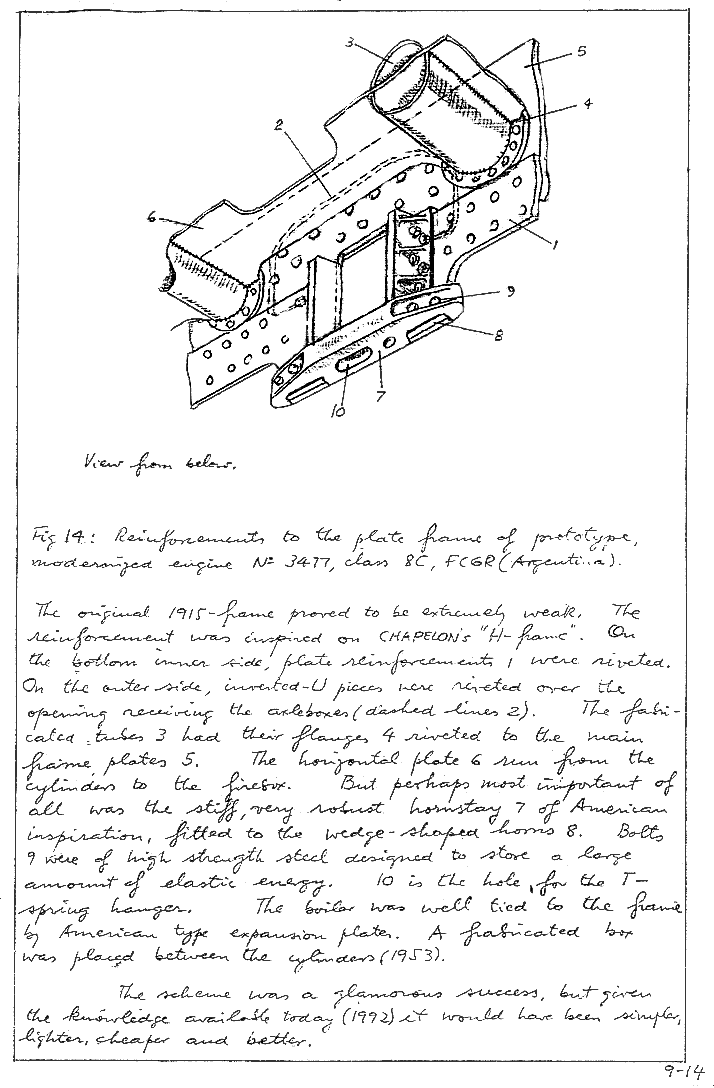 3
5
4
2
6
1
9
8
7
10
View from below.
Fig 14: Reinforcements to the plate frame of prototype,
modernized engine Nº 3477, class 8C, FCGR (Argenti..a).
The original 1915-frame proved to be extremely weak. The
reinforcement was inspired on CHAPELON's "H-frame". On
the bottom inner side, plate reinforcements 1 were riveted.
On the outer side, inverted-U pieces were riveted over the
opening receiving the axleboxes (dashed lines 2). The fabri-
cated tubes 3 had their flanges 4 riveted to the main
frame plates 5. The horizontal plate 6 run from the
cylinders to the firebox. But perhaps most important of
all was the stiff, very robust hornstay 7 of American
inspiration, fitted to the wedge-shaped horns 8. Bolts
9 were of high strength steel designed to store a large
amount of elastic energy. 10 is the hole, for the T-
spring hanger. The boiler was well tied to the frame
by American type expansion plates. A frabricated box
was placed between the cylinders (1953).
The scheme was a glamorous success, but given
the knowledge available today (1992) it would have been simpler,
lighter, cheaper and better.
9-14